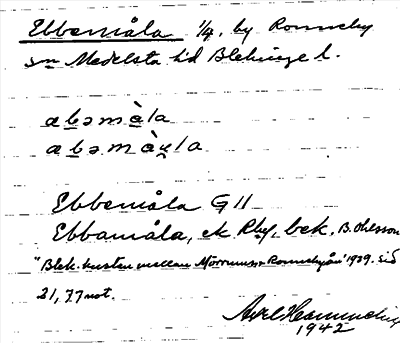 Ebbemåla 1/4, by Ronneby
sn Medelsta hd Blekinge l.
æbəmåla
æbəmåla
Ebbemåla G11
Ebbamåla, ek Rby, bek. B. Ohlsson
"Blek. kusten mellan Mörrumså- Ronnebyån" 1939. sid
31, 77 not.
Axel
1942